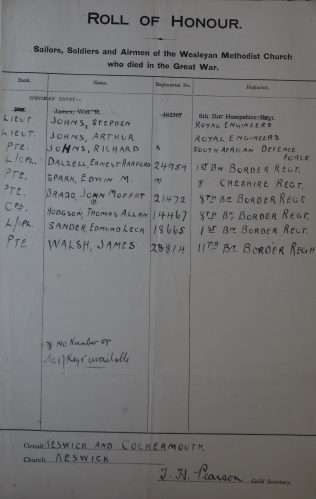 ROLL OF HONOUR.
Sailors, Soldiers and Airmen of the Wesleyan Methodist Church
who died in the Great War.
Rank. Name. Regimental No. Regiment.
SPECIMEN ENTRY:—
James, Wm. R. 6th Bor Hampshire Regt.
LIEUT. JOHNS, STEPHEN ROYAL ENGINEERS
LIEUT. JOHNS, ARTHUR ROYAL ENGINEERS
PTE. JOHNS, RICHARD x SOUTH AFRICAN DEFENCE FORCE
L/CPL. DALZELL ERNEST HARFORD 24959 1ST BN BORDER REGT.
PTE. SPARK, EDWIN M. x CHESHIRE REGT.
PTE. BRAGG, JOHN MOFFAT 21472 8TH BN BORDER REGT.
CPL. HODGSON, THOMAS ALLAN 14467 8TH BN BORDER REGT.
L/CPL. SANDER, EDMUND LECK 18665 1ST BN BORDER REGT.
PTE WALSH, JAMES 28814 11TH BN BORDER REGT
x No Number or
Regt available
Circuit KESWICK AND COCKERMOUTH.
Church KESWICK
T. H. Pearson Guild Secretary.